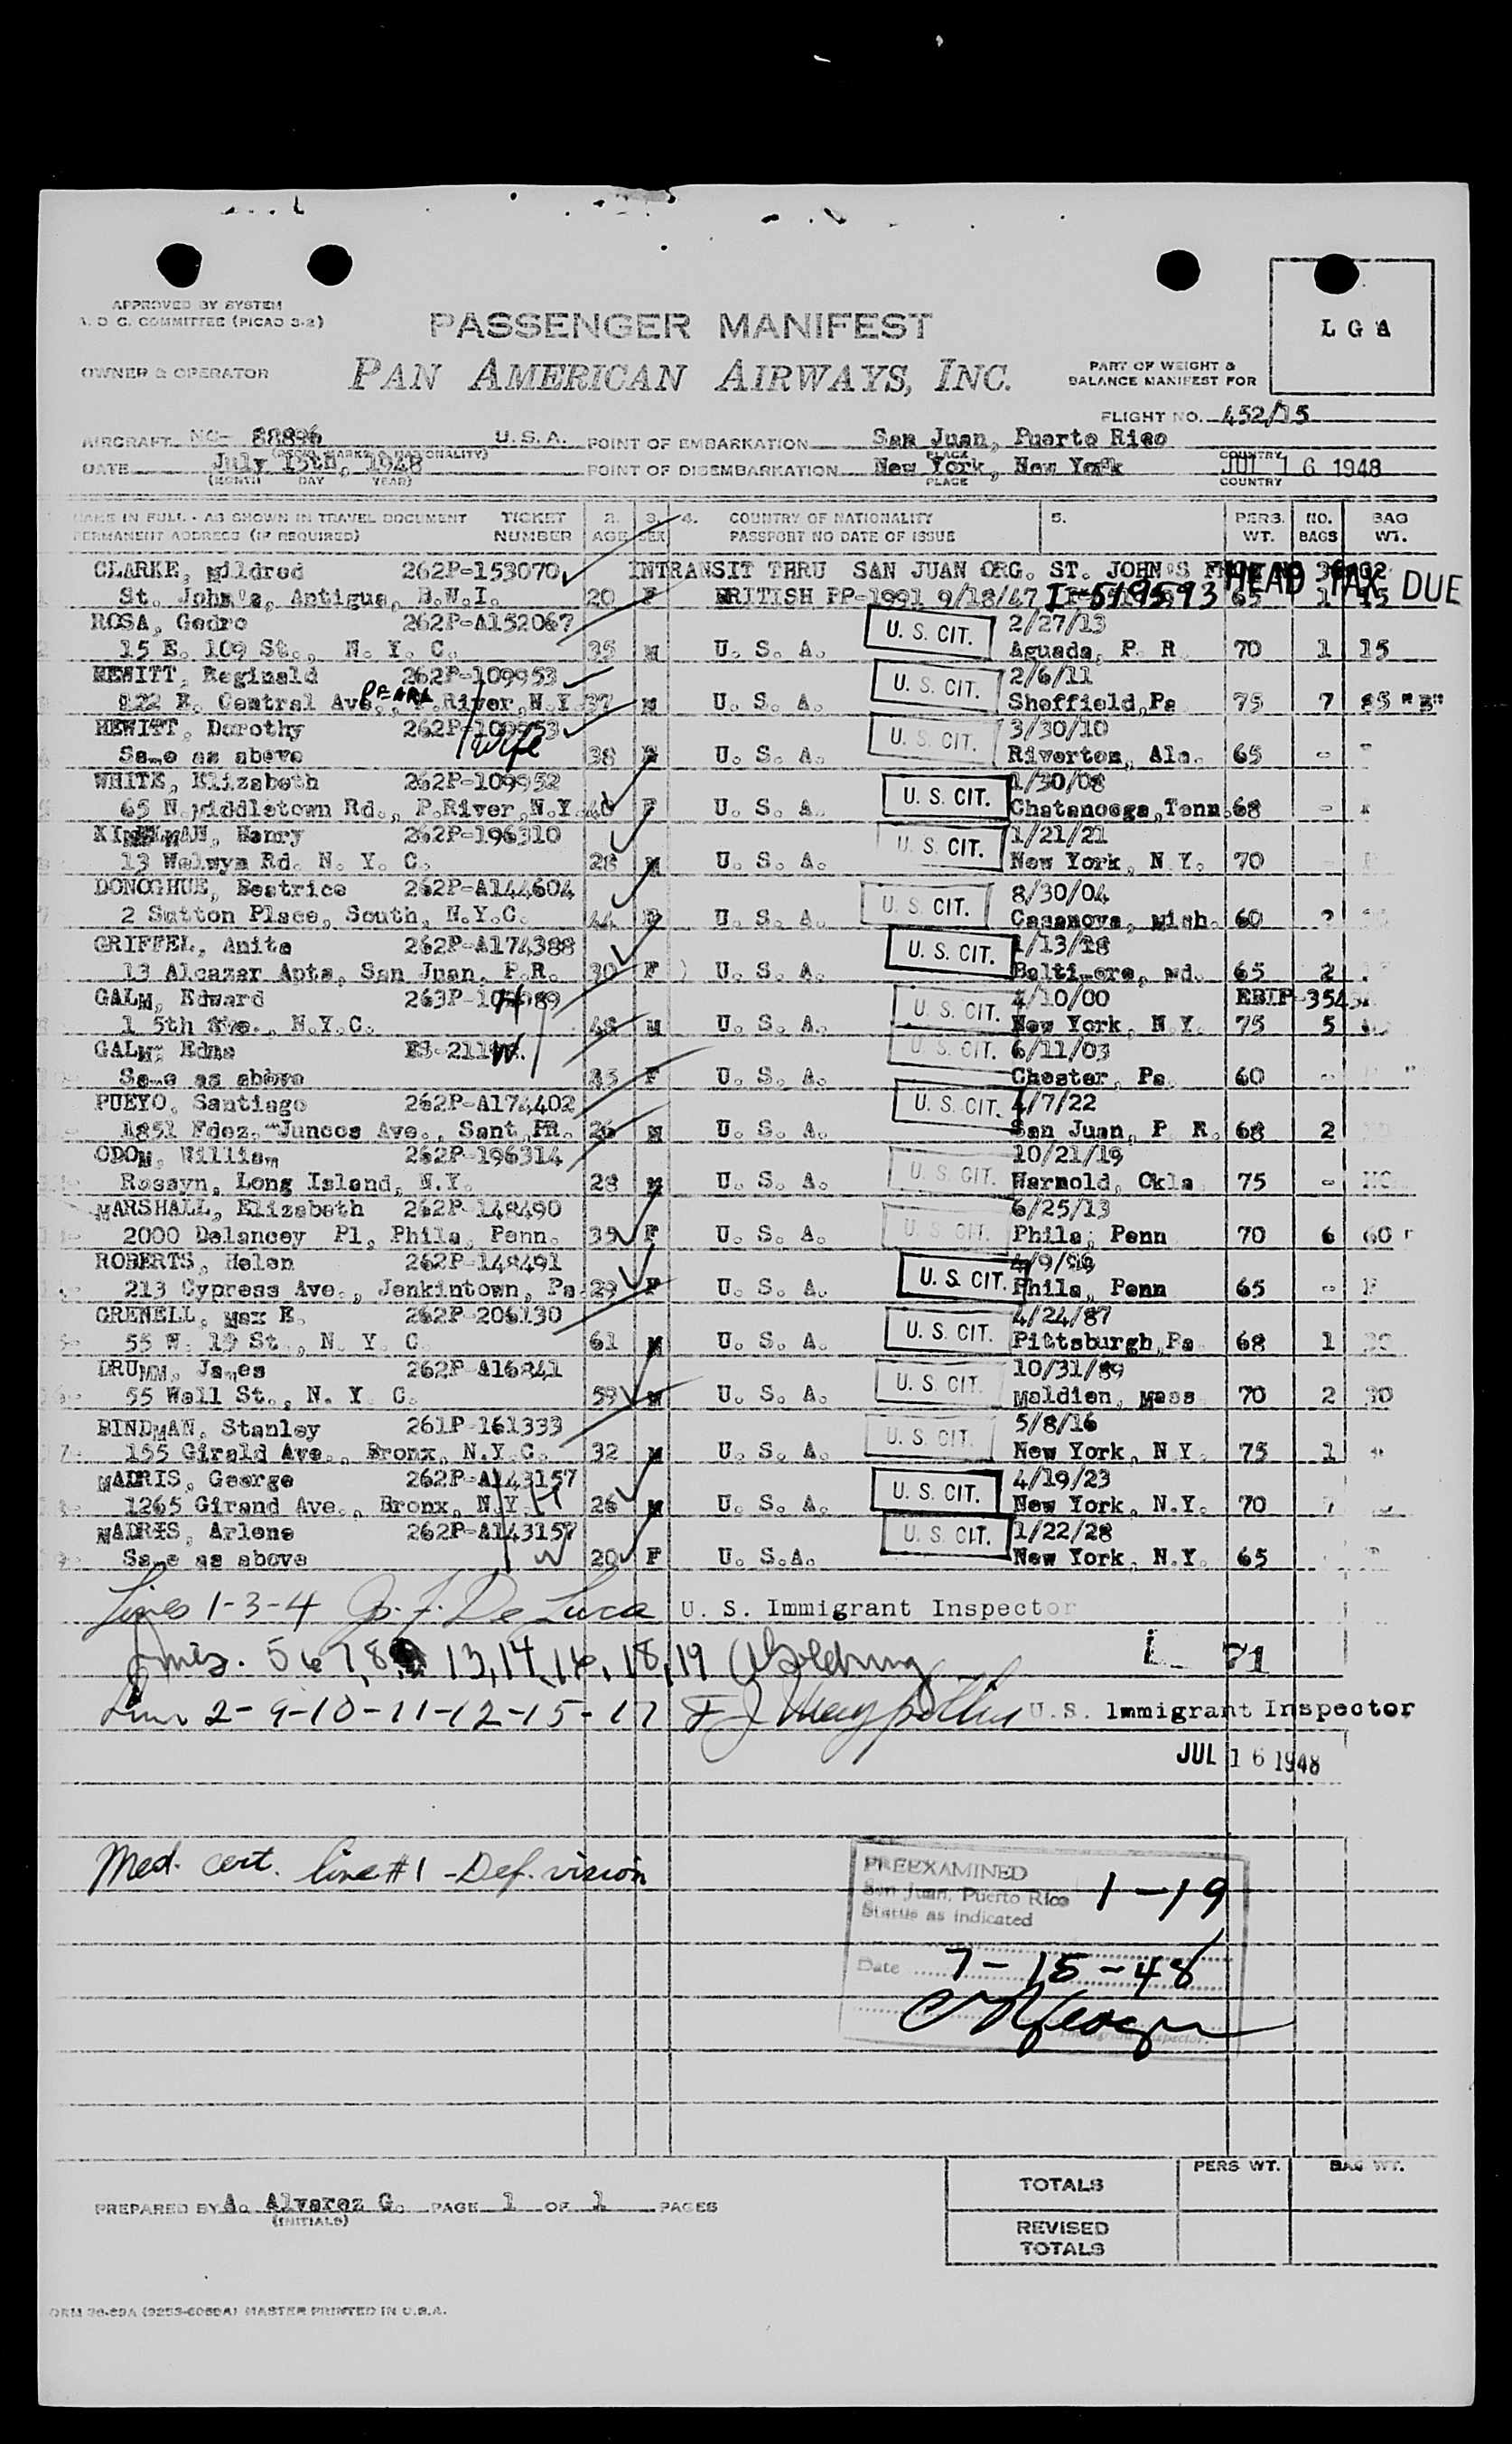 APPROVED BY SYSTEM
A. O C. COMMITTEE (PICAO 3-2)
PASSENGER MANIFEST
L G A
OWNER & OPERATOR
PAN AMERICAN AIRWAYS, INC.
PART OF WEIGHT &
BALANCE MANIFEST FOR
FLIGHT NO. 452/15
AIRCRAFT NC- 88896 U.S.A. POINT OF EMBARKATION San Juan, Puerto Rico
PLACE COUNTRY
DATE July 15th, 1948 POINT OF DISEMBARKATION New York, New York JUL 16 1948
(MONTH DAY YEAR) PLACE COUNTRY
NAME IN FULL - AS SHOWN IN TRAVEL DOCUMENT TICKET 2. 3. 4. COUNTRY OF NATIONALITY 5. PERS. NO. BAG
PERMANENT ADDRESS (IF REQUIRED) NUMBER AGE SEX PASSPORT NO DATE OF ISSUE WT. BAGS WT.
CLARKE, Mildred 262P-153070 INTRANSIT THRU SAN JUAN ORG. ST. JOHN'S
St. John's, Antigua, B.W.I. 20 F BRITISH PP-1991 9/18/47 I-519593 HEAD TAX DUE 65 1 15
ROSA, Gedro 262P-A152067 U. S. CIT. 2/27/13
15 E. 109 St., N. Y. C. 35 M U. S. A. Aguada, P. R 70 1 15
HEWITT, Reginald 262P-109953 U. S. CIT. 2/6/11
122 E. Central Ave., PEARL River, N.Y. 37 M U. S. A. Sheffield, Pa 75 7
HEWITT, Dorothy 262P-109953 wife U. S. CIT. 3/30/10
Same as above 38 U. S. A. Riverton, Ala. 65 -
WHITE, Elizabeth 262P-109952 U. S. CIT. 1/30/08
65 N.Middletown Rd., P.River, N.Y. 40 F U. S. A. Chatanooga, Tenn. 68 -
Henry 262P-196310 U. S. CIT. 1/21/21
13 Welwyn Rd. N. Y. C. 28 M U. S. A. New York, N Y. 70 -
DONOGHUE, Beatrice 262P-A144604 U. S. CIT. 8/30/04
2 Sutton Place, South, N.Y.C. 44 F U. S. A. Casanova, Mich. 60
GRIFFEL, Anita 262P-A174388 U. S. CIT. 1/13/18
13 Alcazar Apts, San Juan, P.R. 30 F U. S. A. Baltimore, Md. 65 2
GALM, Edward 263P- H U. S. CIT. 4/10/00
1 5th Ave., N.Y.C. 48 M U. S. A. New York, N Y. 75 5
GALM, Edna W U. S. CIT. 6/11/03
Same as above F U. S. A. Chester, Pa 60 -
PUEYO, Santiago 262P-A174402 U. S. CIT. 4/7/22
1851 Fdez. Juncos Ave., Sant, PR. 26 M U. S. A. San Juan, P. R. 68 2
ODOM, William 262P-196314 U. S. CIT. 10/21/19
Rossyn, Long Island, N.Y. 28 M U. S. A. Warnold, Okla 75 -
MARSHALL, Elizabeth 262P-148490 U. S. CIT. 6/25/13
2000 Delancey Pl, Phila, Penn. 35 F U. S. A. Phila, Penn 70 6 60
ROBERTS, Helen 262P-148491 U. S. CIT.
213 Cypress Ave., Jenkintown, Pa. 29 F U. S. A. Phila, Penn 65 -
GRENELL, Max E. 262P-206130 U. S. CIT. 4/24/87
55 W. 19 St., N. Y C. 61 M U. S. A. Pittsburgh, Pa 68 1
DRUMM, James 262P-A16841 U. S. CIT. 10/31/89
55 Wall St., N. Y C. 59 M U. S. A. Maldien, Mass 70 2 30
BINDMAN, Stanley 261P-161333 U. S. CIT. 5/8/16
155 Girald Ave., Bronx, N.Y.C. 32 M U. S. A. New York, N Y. 75 1
MADRIS, George 262P-A143157 H U. S. CIT. 4/19/23
1265 Girand Ave., Bronx, N.Y. 26 M U. S. A. New York, N.Y. 70
MADRIS, Arlene 262P-A143157 W U. S. CIT. 1/22/28
Same as above 20 F U. S.A. New York, N.Y. 65
Lines 1-3-4 De Luca U. S. Immigrant Inspector
Lines. 5 6 7, 8, 13, 14, 16, 18, 19 71
Line 2-9-10-11-12-15-17 U.S. Immigrant Inspector
JUL 16 1948
Med. cert. line #1 - Def. vision
PREEXAMINED
San Juan, Puerto Rico 1-19
Status as indicated
Date 7-15-48
Immigrant Inspector.
PERS WT. BAG WT.
TOTALS
PREPARED BY A. Alvarez G. PAGE 1 OF 1 PAGES
(INITIALS)
REVISED
TOTALS
MASTER PRINTED IN U.S.A.